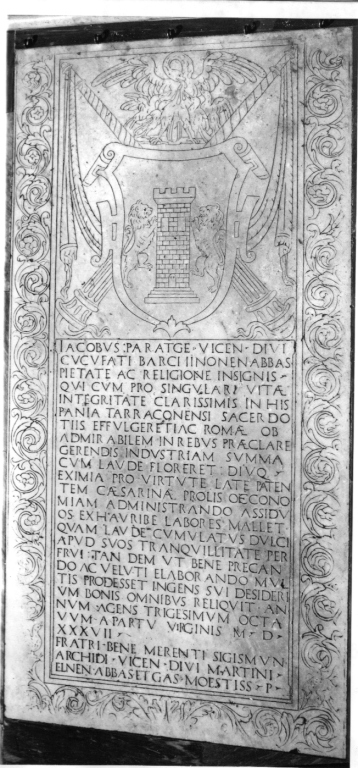 IACOBUS · PARATGE · VICEN · DIVI
CUCUFATI BARCIIINONEN ABBAS
PIETATE AC RELIGIONE INSIGNIS
QUI CUM PRO SINGULARI VITÆ
INTEGRITATE CLARISSIMIS IN HIS
PANIA TARRACONENSI SACERDO
TIIS EFFULGERET IAC ROMÆ OB
ADMIRABILEM IN REBUS PRÆCLARE
GERENDIS INDUSTRIAM SUMMA
CUM LAUDE FLORERET DIUQ
EXIMIA PRO VIRTUTE LATE PATEN
TEM CÆSARINÆ PROLIS OECONO
MIAM ADMINISTRANDO ASSIDU
OS EXHAURIBE LABORES MALLET
QUAM LAUDE CUMULATUS DULCI
APUD SUOS TRANQUILLITATE PER
FRVI TAN DEM UT BENE PRECAN
DO AC VELUTI ELABORANDO MUL
TIS PRODESSET INGENS SUI DESIDERI
UM BONIS OMNIBUS RELIQUIT AN
NUM AGENS TRIGESIMUM OCTA
VUM A PARTU VIRGINIS M · D ·
XXXVII ·
FRATRI · BENE MERENTI SIGISMUN
ARCHIDI · VICEN · DIVI MARTINI ·
ELNEN · ABBAS ET GAS · MOESTISS · P ·